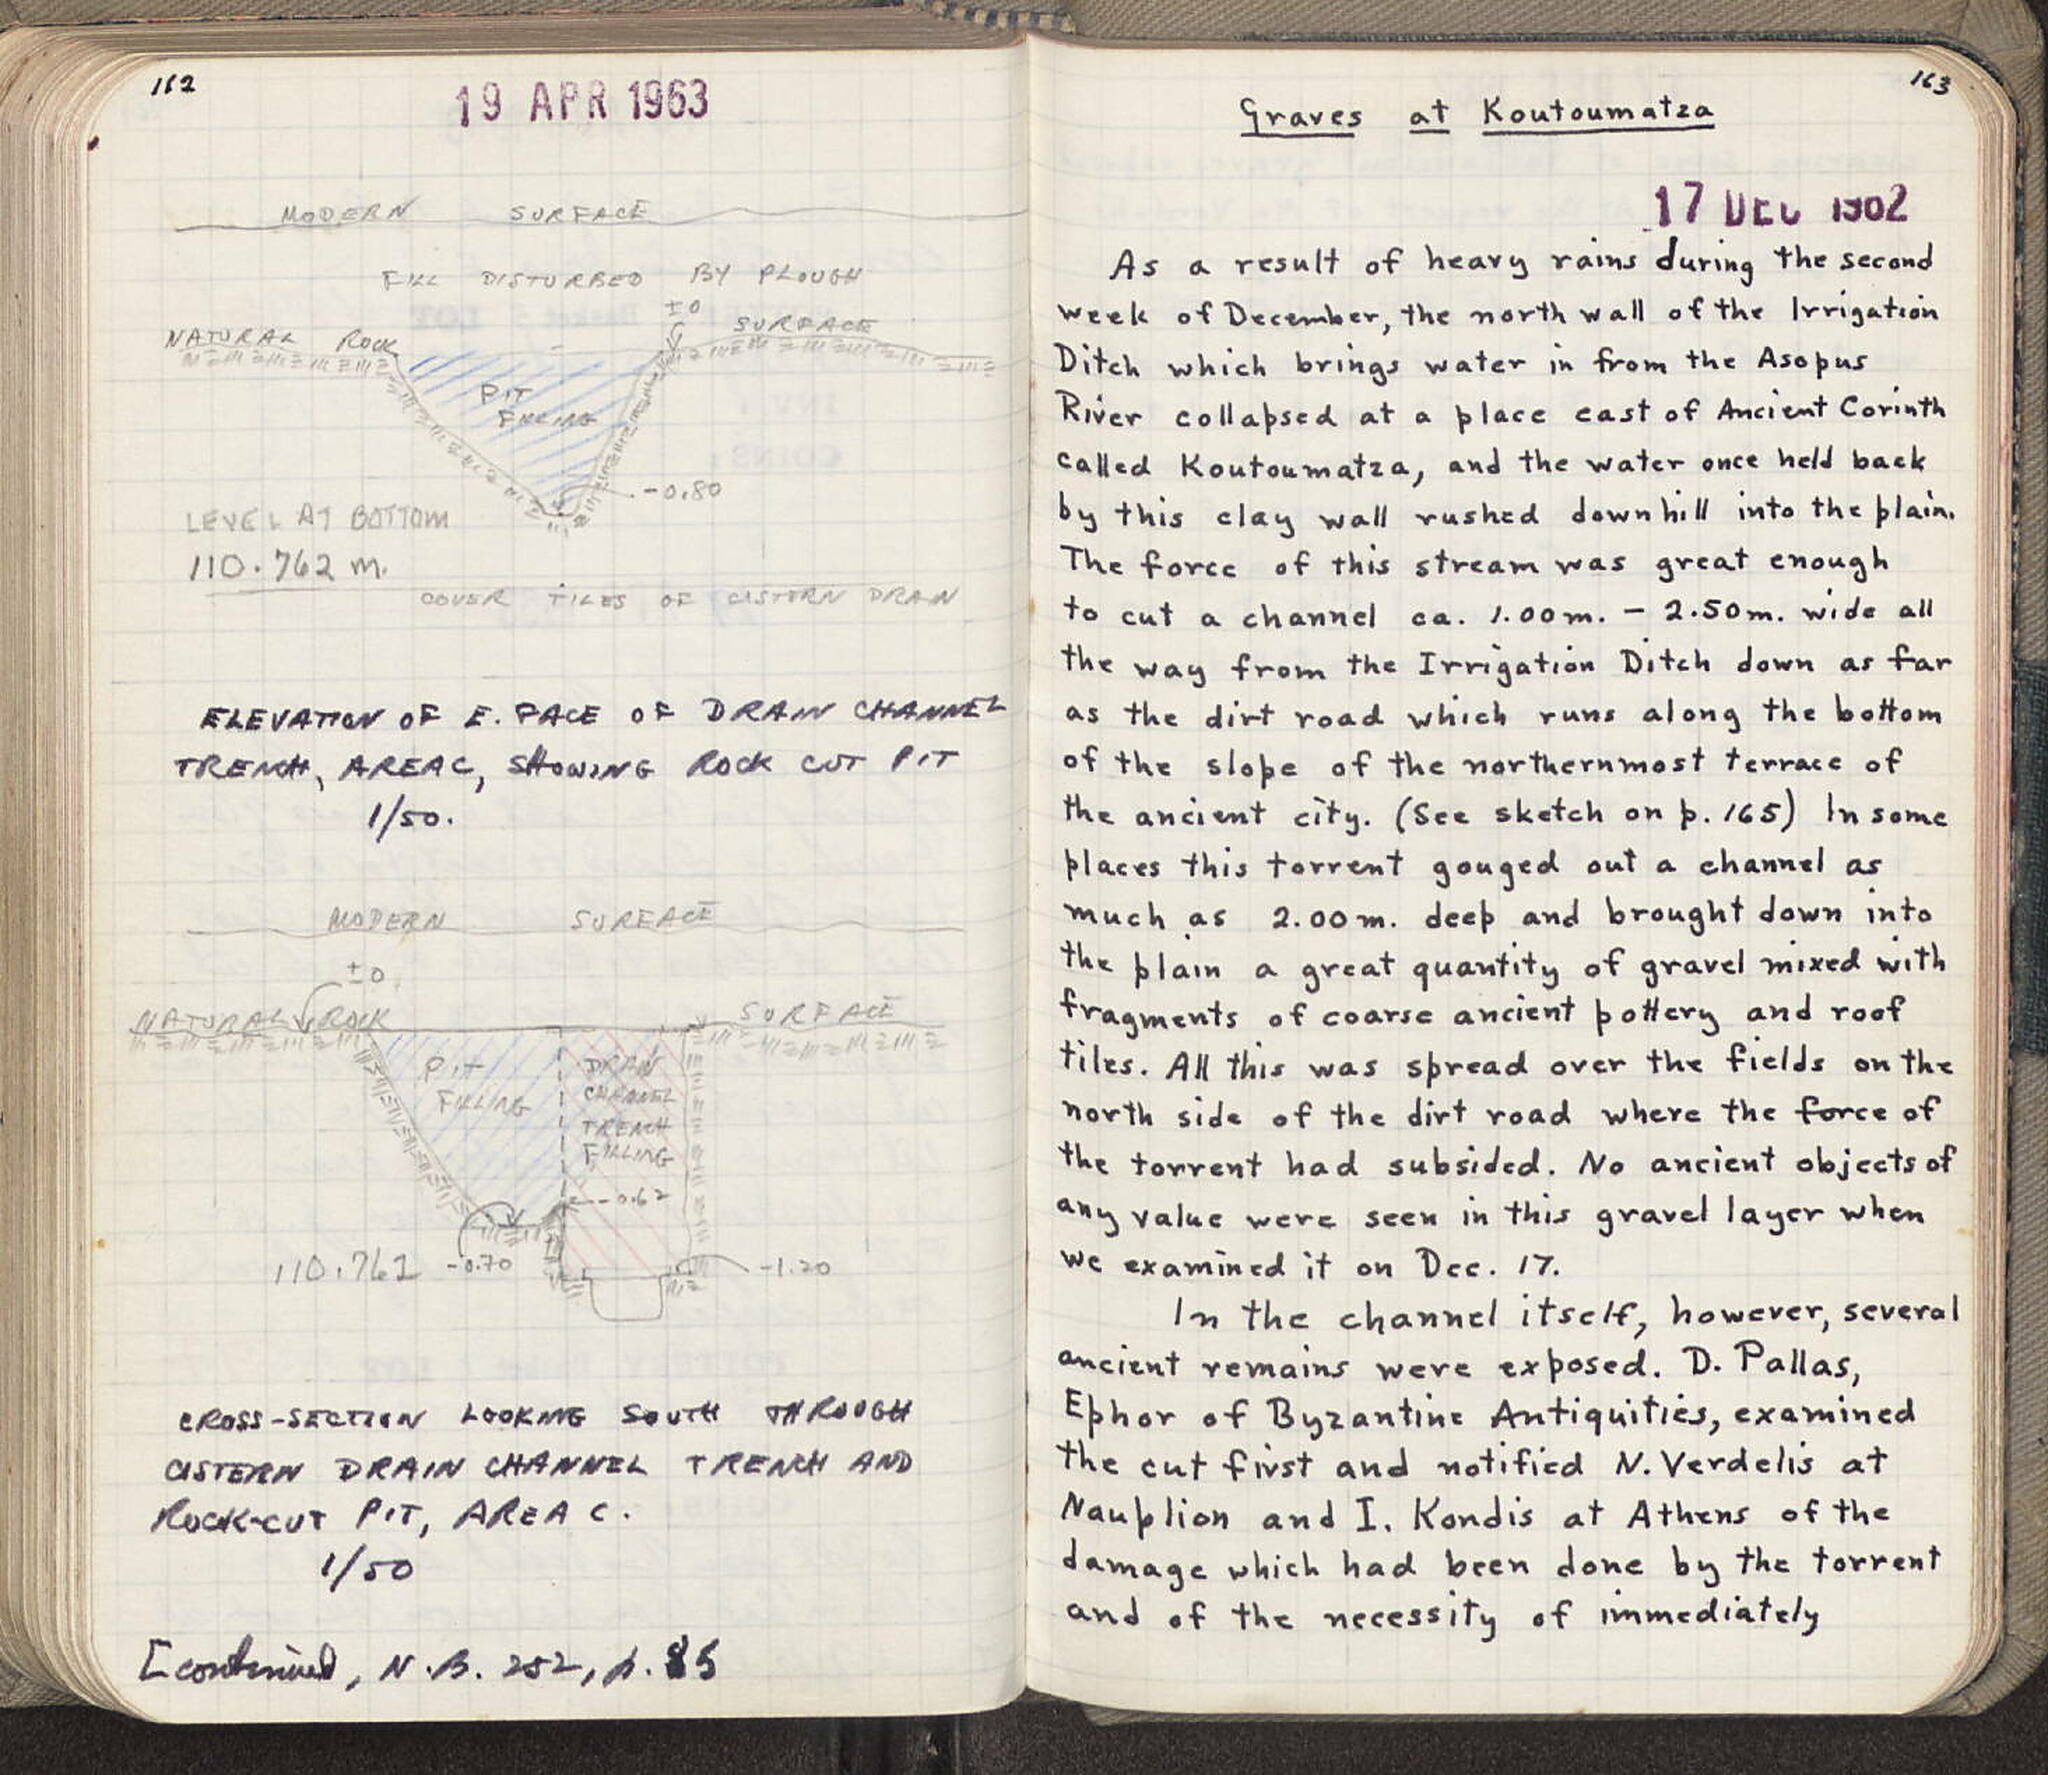 162
19 APR 1963
MODERN SURFACE
FILL DISTURBED BY PLOUGH
±0
NATURAL ROCK SURFACE
PIT
FILLING
-0.80
LEVEL AT BOTTOM
110.762 m.
COVER TILES OF CISTERN DRAIN
ELEVATION OF E. FACE OF DRAIN CHANNEL
TRENCH, AREA C, SHOWING ROCK CUT PIT
1/50.
MODERN SURFACE
±0
NATURAL ROCK SURFACE
PIT
FILLING
DRAIN
CHANNEL
TRENCH
FILLING
-0.62
110.762 -0.70 -1.20
CROSS-SECTION LOOKING SOUTH THROUGH
CISTERN DRAIN CHANNEL TRENCH AND
ROCK-CUT PIT, AREA C.
1/50
[continued, N.B. 252, p. 85
163
Graves at Koutoumatza
17 DEC 1962
As a result of heavy rains during the second
week of December, the north wall of the Irrigation
Ditch which brings water in from the Asopus
River collapsed at a place east of Ancient Corinth
called Koutoumatza, and the water once held back
by this clay wall rushed downhill into the plain.
The force of this stream was great enough
to cut a channel ca. 1.00m. - 2.50m. wide all
the way from the Irrigation Ditch down as far
as the dirt road which runs along the bottom
of the slope of the northernmost terrace of
the ancient city. (See sketch on p. 165) In some
places this torrent gouged out a channel as
much as 2.00m. deep and brought down into
the plain a great quantity of gravel mixed with
fragments of coarse ancient pottery and roof
tiles. All this was spread over the fields on the
north side of the dirt road where the force of
the torrent had subsided. No ancient objects of
any value were seen in this gravel layer when
we examined it on Dec. 17.
In the channel itself, however, several
ancient remains were exposed. D. Pallas,
Ephor of Byzantine Antiquities, examined
the cut first and notified N. Verdelis at
Nauplion and I. Kondis at Athens of the
damage which had been done by the torrent
and of the necessity of immediately